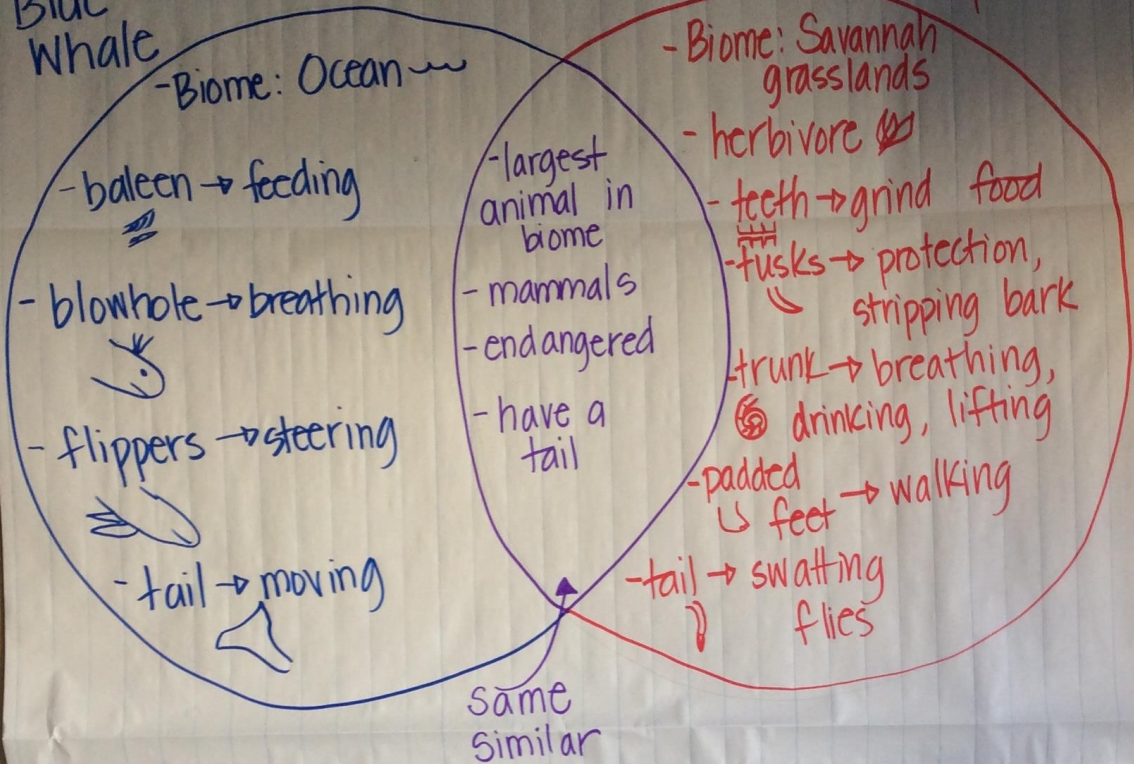 Blue
Whale
-Biome: Ocean
-baleen → feeding
- blowhole → breathing
- flippers → steering
-tail → moving
-largest
animal in
biome
-mammals
-endangered
-have a
tail
same
similar
-Biome: Savannah
grasslands
- herbivore
-teeth → grind food
-tusks → protection,
stripping bark
-trunk → breathing,
drinking, lifting
-padded
feet → walking
-tail → swatting
flies